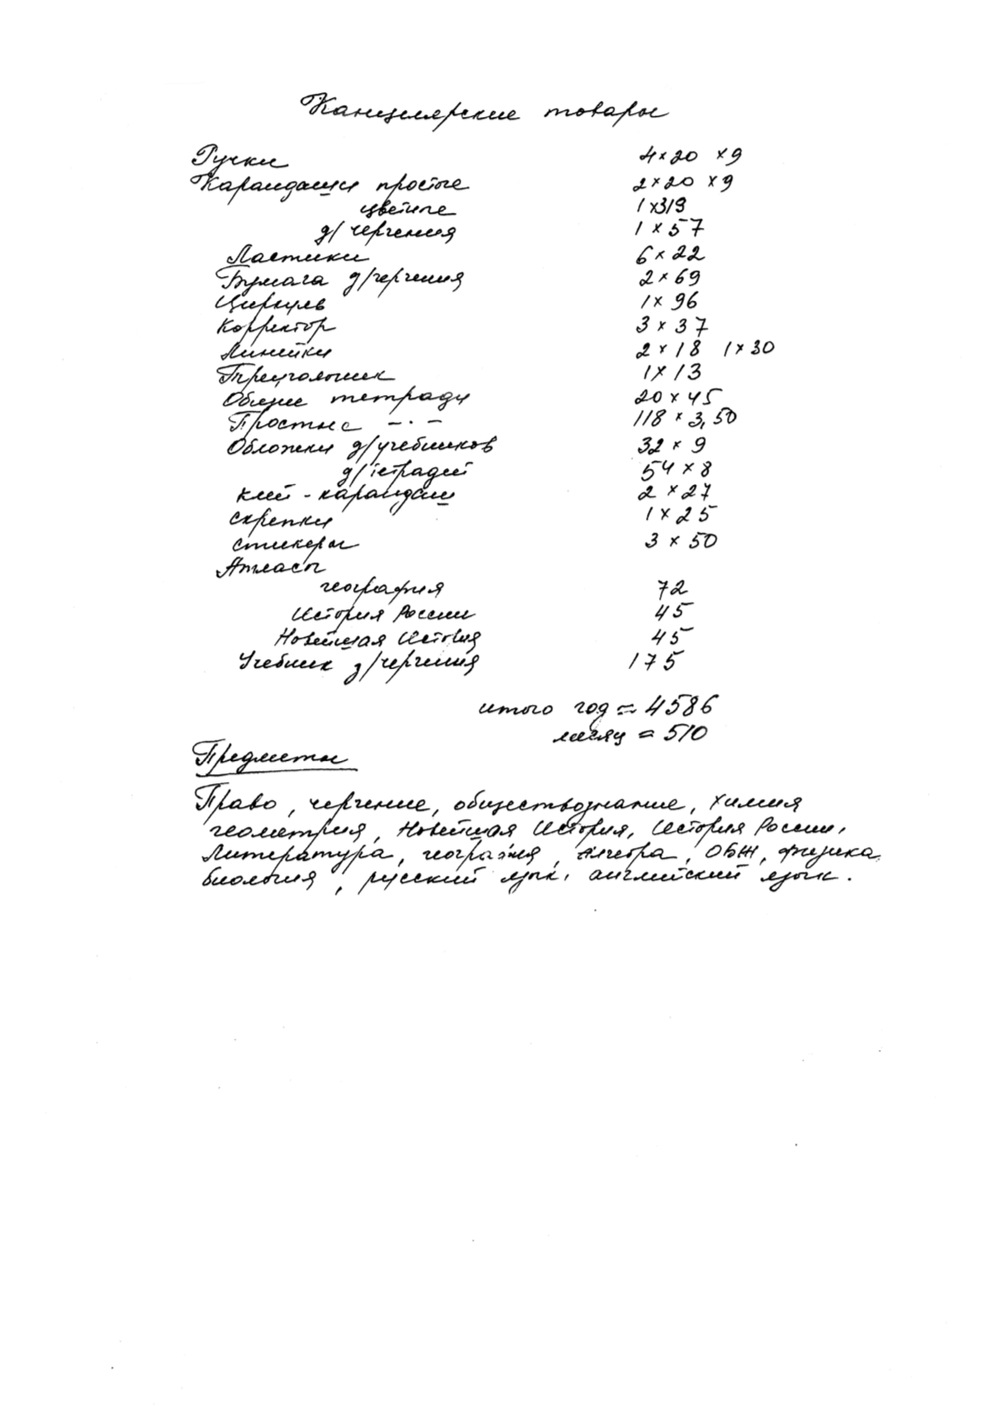 Канцелярские товары
Ручки 4×20 ×9
Карандаши простые 2×20 ×9
цветные 1×319
д/черчения 1×57
Ластики 6×22
Бумага д/черчения 2×69
Циркуль 1×96
Корректор 3×37
Линейки 2×18 1×30
Треугольник 1×13
Общие тетради 20×45
Простые –·– 118×3,50
Обложки д/учебников 32×9
д/тетрадей 54×8
клей-карандаш 2×27
скрепки 1×25
стикеры 3×50
Атласы
география 72
История России 45
Новейшая История 45
Учебник д/черчения 175
итого год = 4586
месяц = 510
Предметы
Право, черчение, обществознание, химия
геометрия, Новейшая История, История России,
Литература, география, алгебра, ОБЖ, физика,
биология, русский язык, английский язык.